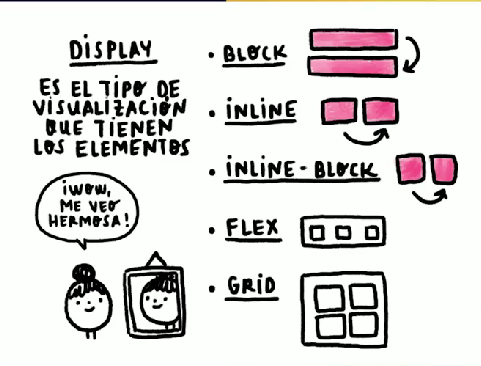 DISPLAY
ES EL TIPO DE
VISUALIZACIÓN
QUE TIENEN
LOS ELEMENTOS
¡WOW,
ME VEO
HERMOSA!
• BLOCK
• INLINE
• INLINE-BLOCK
• FLEX
• GRID